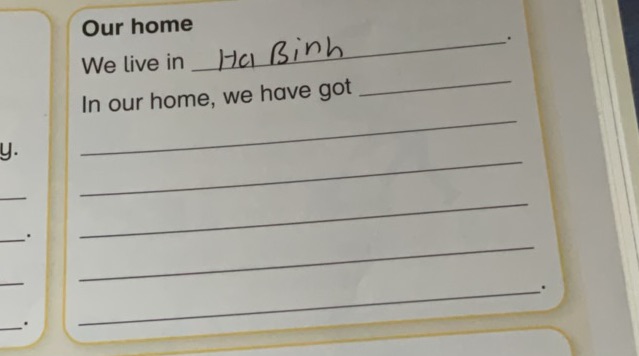 Our home
We live in Ha Binh.
In our home, we have got
y.
.
.
.